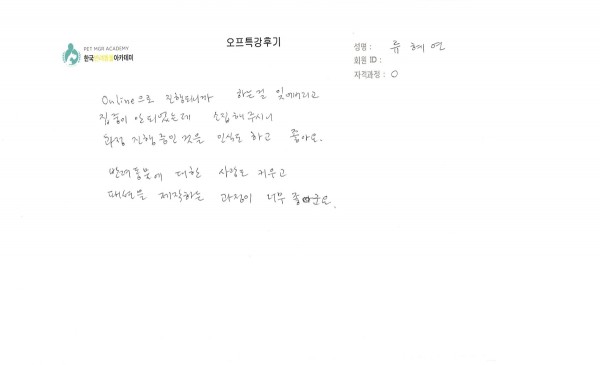 PET MGR ACADEMY
한국반려동물아카데미
오프특강후기
성명 : 류혜연
회원 ID :
자격과정 : O
Online으로 진행되니까 하는걸 잊어버리고
집중이 안 되었는데 소집해 주시니
과정 진행중인 것을 인식도 하고 좋아요.
반려동물에 대한 사랑도 키우고
패션을 제작하는 과정이 너무 좋군요.